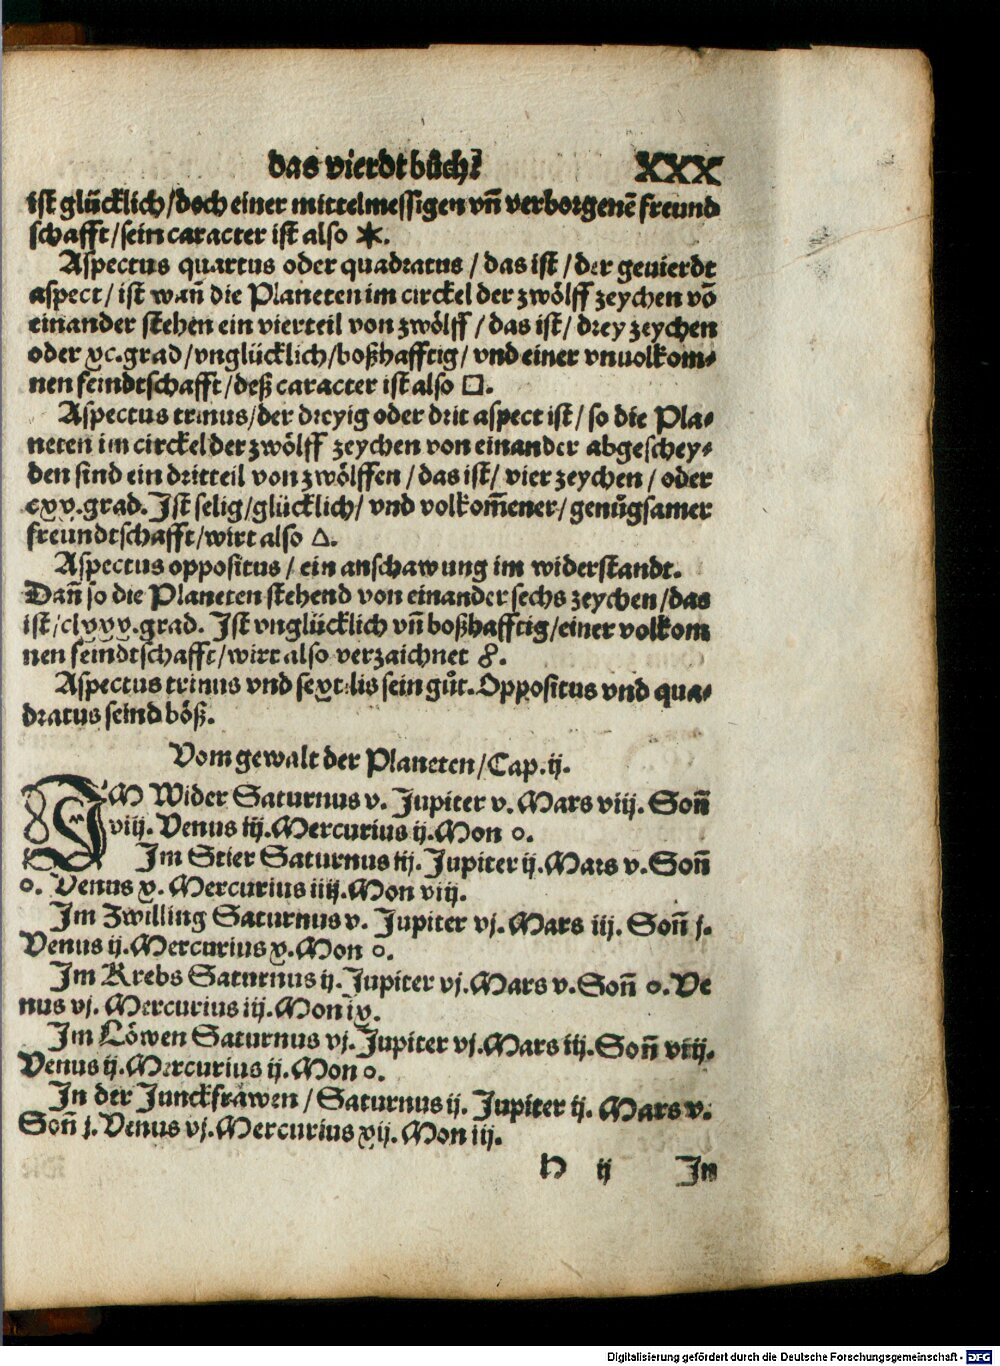 das vierdt bůch XXX
ist glücklich/doch einer mittelmessigen vñ verborgenē freund
schafft/sein caracter ist also ✶.
Aspectus quartus oder quadratus / das ist / der geuierdt
aspect / ist wañ die Planeten im circkel der zwölff zeychen vō
einander stehen ein vierteil von zwölff / das ist / drey zeychen
oder xc.grad/vnglücklich/boßhafftig/ vnd einer vnuolkom⸗
nen feindtschafft/deß caracter ist also □.
Aspectus trinus/der dreyig oder drit aspect ist/ so die Pla⸗
neten im circkel der zwölff zeychen von einander abgeschey⸗
den sind ein dritteil von zwölffen / das ist/ vier zeychen / oder
cxx.grad. Ist selig/glücklich/ vnd volkom̃ener/genůgsamer
freundtschafft/wirt also △.
Aspectus oppositus / ein anschawung im widerstandt.
Dañ so die Planeten stehend von einander sechs zeychen/das
ist/clxxx.grad. Ist vnglücklich vñ boßhafftig/einer volkom
nen feindtschafft/wirt also verzaichnet ☍.
Aspectus trinus vnd sextilis sein gůt. Oppositus vnd qua⸗
dratus seind böß.
Vom gewalt der Planeten/Cap.ij.
IM Wider Saturnus v. Jupiter v. Mars viij. Soñ
viij. Venus iij. Mercurius ij. Mon o.
Im Stier Saturnus iij. Jupiter ij. Mars v. Soñ
o. Venus x. Mercurius iiij. Mon viij.
Im Zwilling Saturnus v. Jupiter vj. Mars iij. Soñ j.
Venus ij. Mercurius x. Mon o.
Im Krebs Saturnus ij. Jupiter vj. Mars v. Soñ o. Ve
nus vj. Mercurius iij. Mon ix.
Im Löwen Saturnus vj. Jupiter vj. Mars iij. Soñ viij.
Venus ij. Mercurius ij. Mon o.
In der Junckfrawen / Saturnus ij. Jupiter ij. Mars v.
Soñ j. Venus vj. Mercurius xij. Mon iij.
H ij In
Digitalisierung gefördert durch die Deutsche Forschungsgemeinschaft - DFG